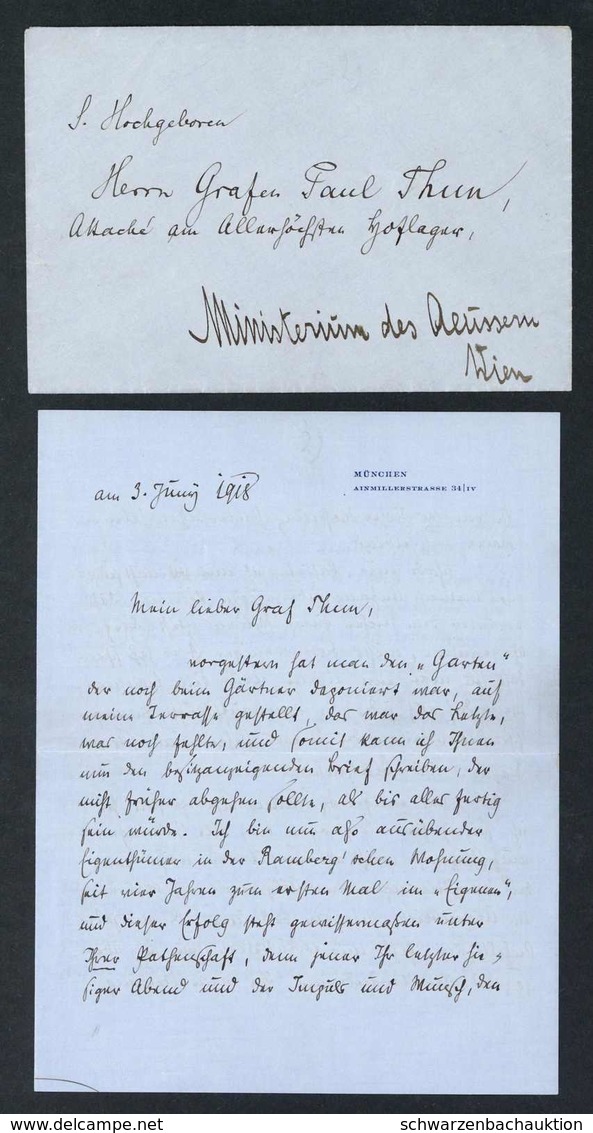 S. Hochgeboren
Herrn Grafen Paul Thun,
Attaché am Allerhöchsten Hoflager,
Ministerium des Aeussern
Wien
MÜNCHEN
AINMILLERSTRASSE 34|IV
am 3. Juny 1918
Mein lieber Graf Thun,
vorgestern hat man den „Garten"
der noch beim Gärtner deponiert war, auf
meine Terrasse gestellt, das war das Letzte,
was noch fehlte, und somit kann ich Ihnen
nun den besitzanzeigenden Brief schreiben, der
nicht früher abgehen sollte, als bis alles fertig
sein würde. Ich bin nun also ausübender
Eigenthümer in der Ramberg'schen Wohnung,
seit vier Jahren zum ersten Mal im „Eigenen",
und dieser Erfolg steht gewissermaßen unter
Ihrer Pathenschaft, denn jener Ihr letzter hie-
siger Abend und der Impuls und Wunsch, den
delcampe.net
schwarzenbachauktion